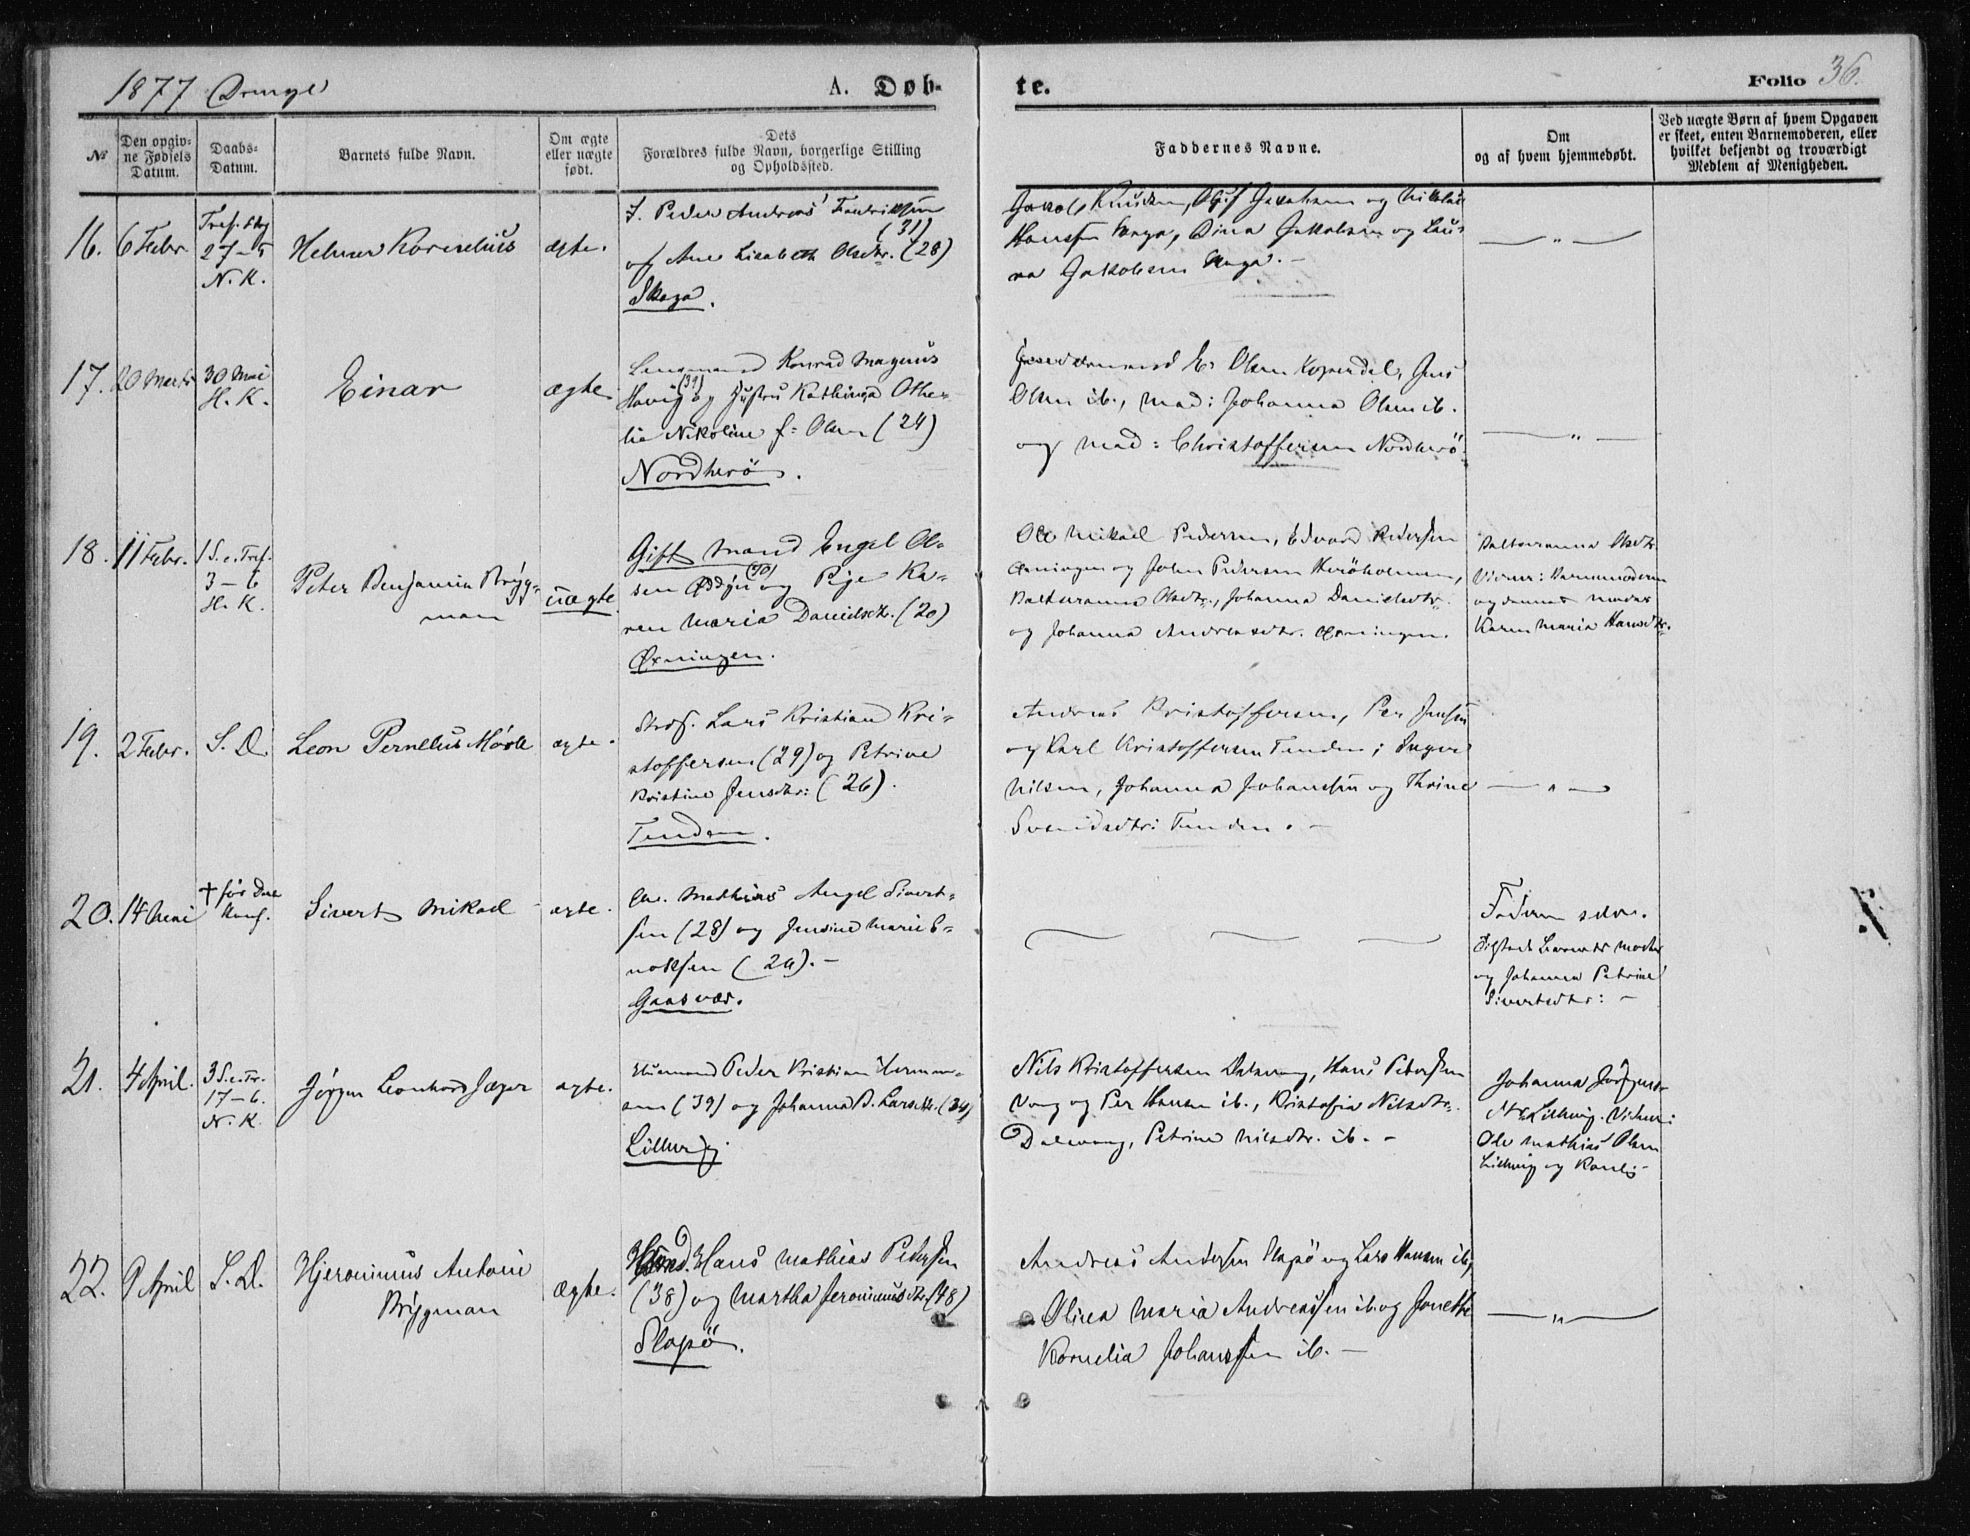 1877 Drenge
A. Døb-
te.
Folio 36.
No
Den opgiv-
ne Fødsels
Datum.
Daabs-
Datum.
Barnets fulde Navn.
Om ægte
eller uægte
født.
Dets
Forældres fulde Navn, borgerlige Stilling
og Opholdssted.
Faddernes Navne.
Om
og af hvem hjemmedøbt.
Ved uægte Børn af hvem Opgaven
er skeet, enten Barnemoderen, eller
hvilket bekjendt og troværdigt
Medlem af Menigheden.
16.
6 Febr.
Tref. Sdg
27-5
N. K.
Helmer Kornelius
ægte.
I. Peder Andreas Fredriksen
(31)
og Ane Lisabeth Olsdtr. (28)
Skaga.
Jakob Knudsen, Jakobsen og Nikolai
Hanssen Skaga, Dina Jakobsen og Lau-
ra Jakobsen Skaga. -
— „ —
17.
20 Marts
30 Mai
H. K.
Einar
ægte
Lensmand Konrad Magnus
Havig (39) og Hustru Kathinga Othe-
lie Nikoline f: Olsen (24)
Nordherö.
E. Olsen Kopardal, Jens
Olsen ib., Mad: Johanna Olsen ib.
og Mad: Christoffersen Nordherö.
— „ —
18.
11 Febr.
1 S. e. Tref.
3-6
H. K.
Peter Benjamin Brygg-
man
uægte.
Gift Mand Engel Ol-
sen (40) og Pige Ka-
ren Maria Danielsdtr. (20)
Øxningen.
Ole Mikael Pedersen, Edvard Pedersen
Øxningen og John Pedersen Heröholmen,
Baltseranna Olsdtr., Johanna Danielsdtr.
og Johanna Andreasdtr. Øxningen.
Baltseranna Olsdtr.
Vidner: Barnemoderen
og dennes moder
Karen Maria Hansdtr.
19.
2 Febr.
S. D.
Leon Pernelius Mørk
ægte.
Strdf. Lars Kristian Kri-
stoffersen (29) og Petrine
Kristine Jensdtr: (26).
Tenden.
Andreas Kristoffersen, Per Jensen
og Karl Kristoffersen Tenden; Inger
Nilsen, Johanna Johanssen og Thrine
Svendsdtr: Tenden. -
— „ —
20.
14 Mai
† før Daab
Sivert Mikael
ægte.
Mathias Angel Sivert-
sen (28) og Jensine Marie E-
noksen (24). -
Gaasvær.
Faderen selv.
Tilstede Barnets Moder
og Johanna Petrine
Sivertsdtr: -
21.
4 April.
3 S. e. Tr.
17-6.
N. K.
Jörgen Leonhard Jæger
ægte.
Husmand Peder Kristian Herman-
sen (39) og Johanna B. Larsdtr. (34)
Lillevig
Nils Kristoffersen Dalevaag, Hans Pedersen
Vaag og Per Hansen ib., Kristofia Nilsdtr.
Dalevaag, Petrine Nilsdtr. ib. -
Johanna Jörgens-
dtr. Lillevig. Vidner:
Ole Mathias Olsen
Lillevig og
22.
9 April
S. D.
Hjeronimus Antoni
Brygman
Ægte.
Hans Mathias Pedersen
(38) og Martha Jeronimusdtr. (48)
Slapö.
Andreas Andersen Slapö og Lars Hansen ib,
Olivia Maria Andreassen ib. og Jonette
Kornelia Johanssen ib. -
— „ —